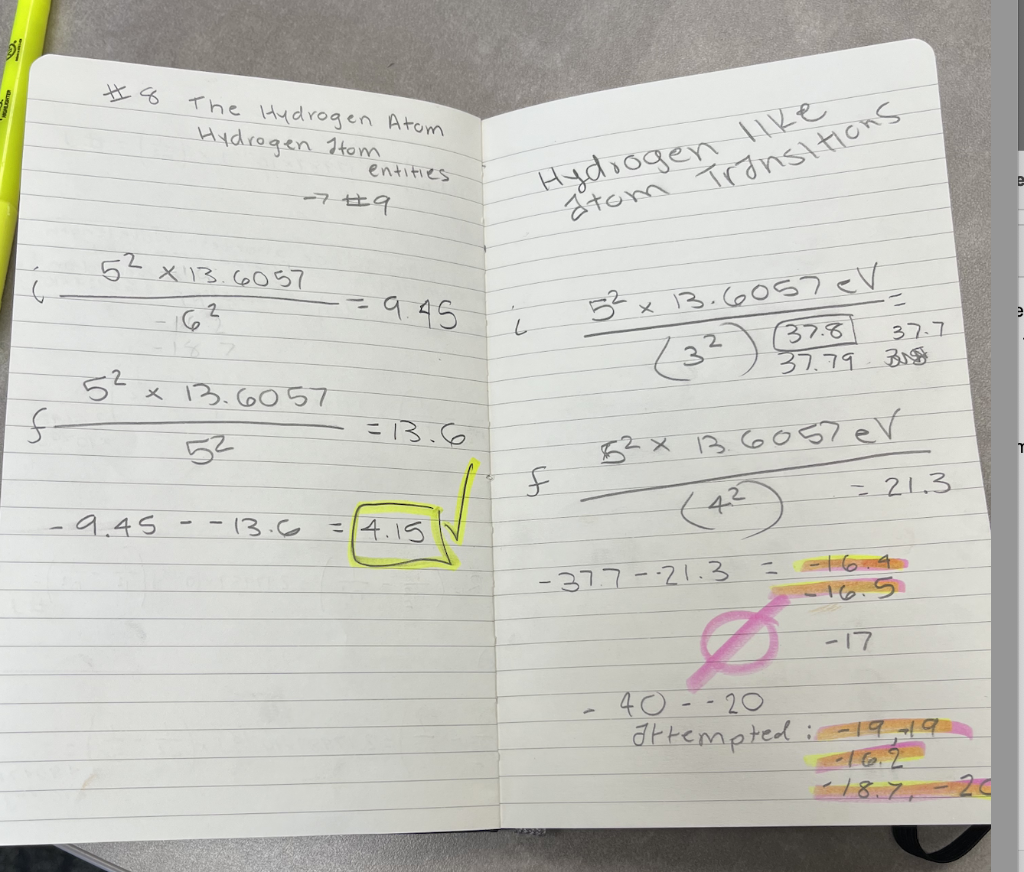 #8 The Hydrogen Atom
Hydrogen Atom
entities
→ #9
i 5² x 13.6057
6²
= 9.45
f 5² x 13.6057
5²
= 13.6
-9.45 - -13.6 = 4.15 ✓
Hydrogen like
Atom Transitions
i 5² x 13.6057 eV =
(3²) 37.8 37.7
37.79
f 5² x 13.6057 eV
(4²) = 21.3
-37.7 - -21.3 = -16.4
-16.5
-17
- 40 - -20
Attempted : -19, +19
-16.2
-18.7, -20